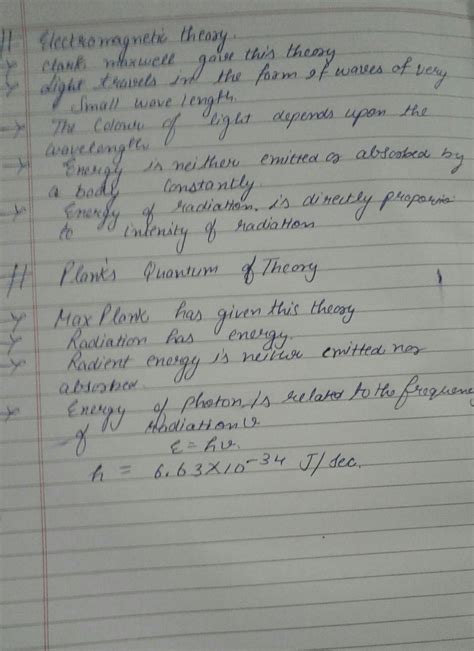 // Electromagnetic theory.
→ clark maxwell gave this theory
→ Light travels in the form of waves of very
small wave length.
→ The Colour of light depends upon the
wavelength.
→ Energy is neither emitted or absorbed by
a body constantly.
→ Energy of radiation. is directly proporio
to intensity of radiation
// Plank's Quantum of Theory
→ Max Plank has given this theory
→ Radiation has energy.
→ Radient energy is neither emitted nor
absorbed.
→ Energy of photon is related to the frequenc
of Radiation ν
ε = hν.
h = 6.63×10⁻³⁴ J/sec.